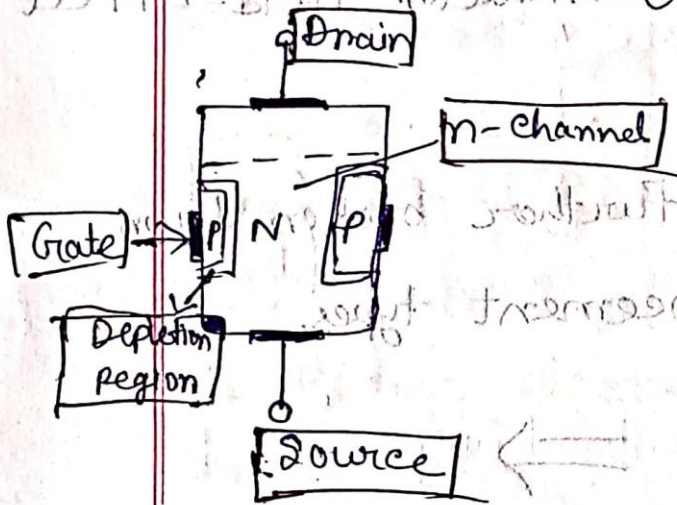 Drain
n-channel
Gate
P
N
P
Depletion
region
Source